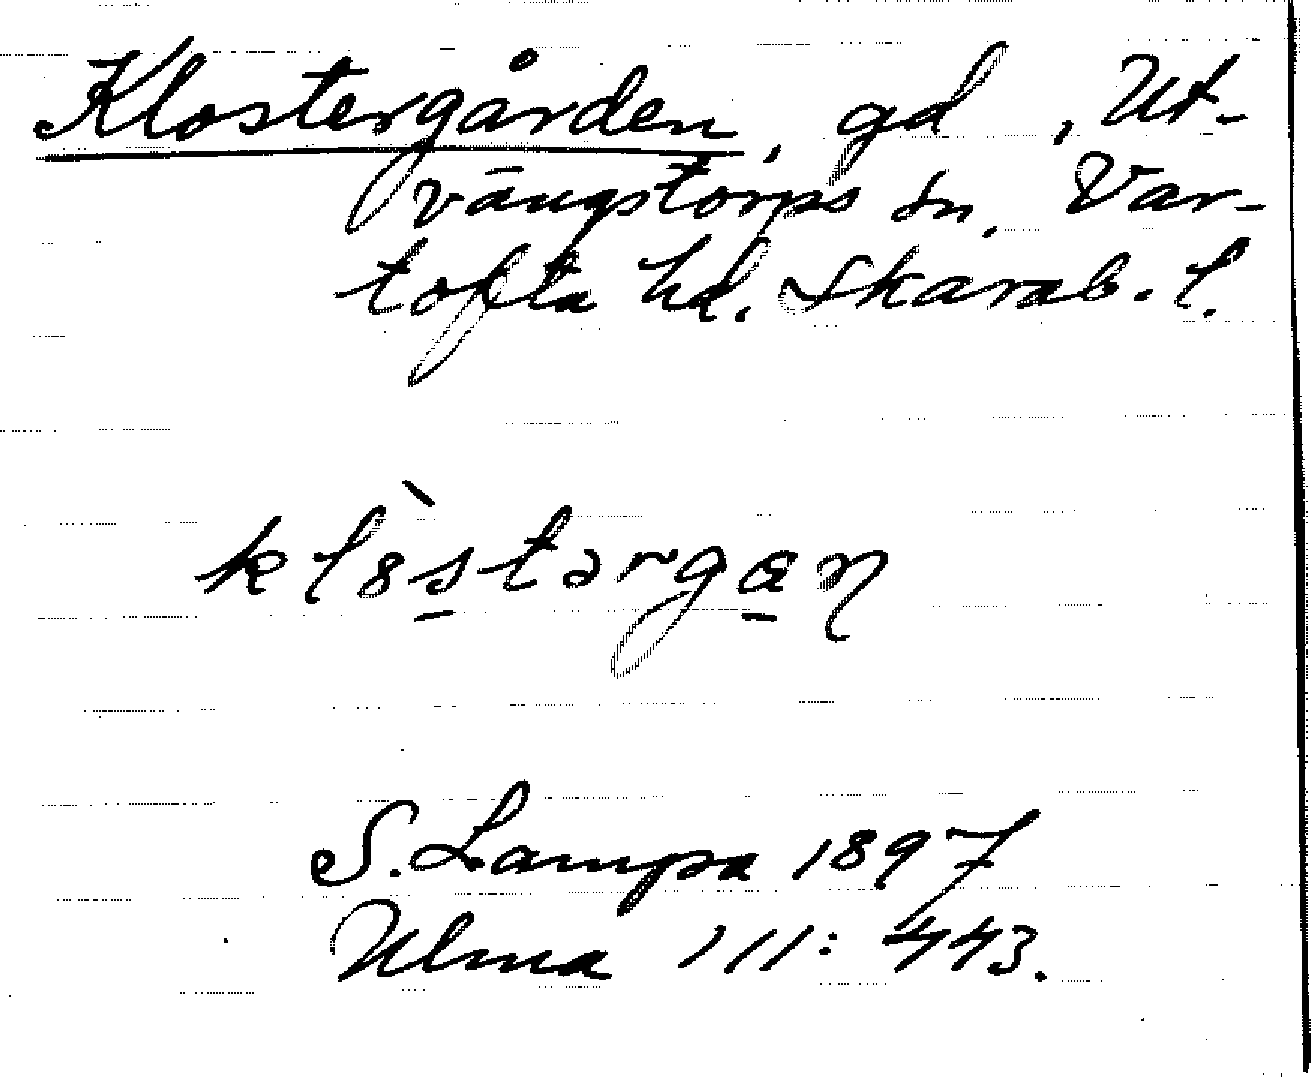 Klostergården, gd, Ut-
vängstorps sn, Var-
tofta hd. Skarab. l.
kl8̀s̲tərga̲ŋ
S. Lampa 1897
Ulma 111: 443.